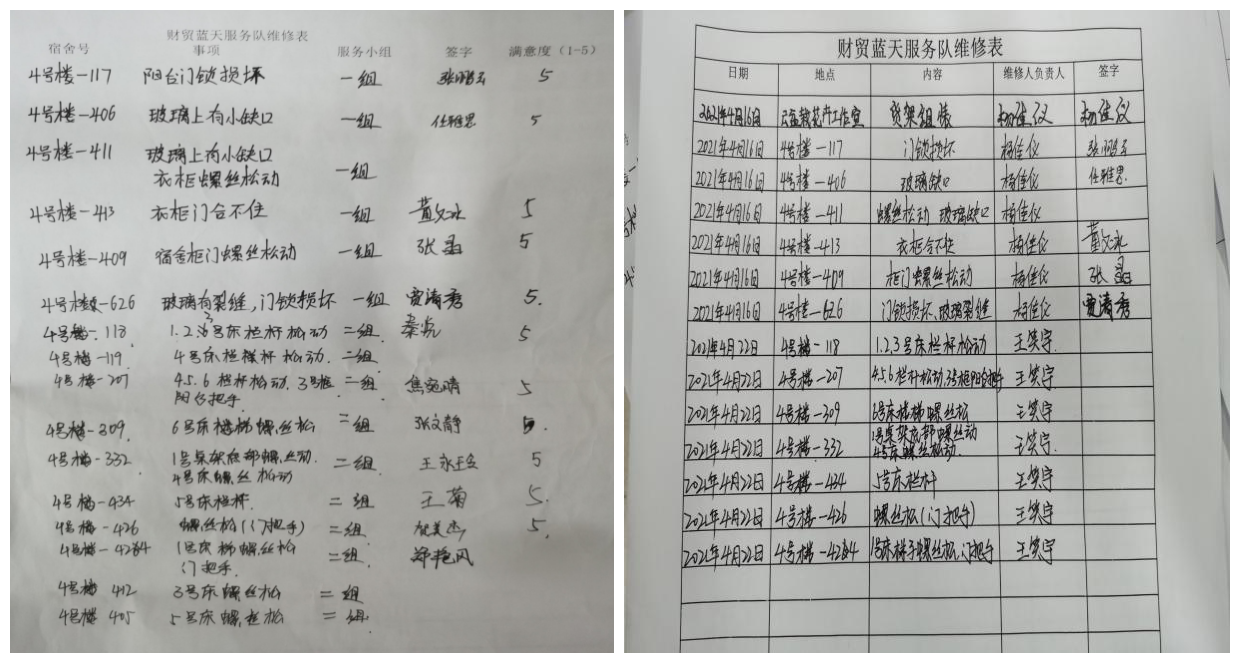 财贸蓝天服务队维修表
宿舍号 事项 服务小组 签字 满意度（1-5）
4号楼-117 阳台门锁损坏 一组 张鹏云 5
4号楼-406 玻璃上有小缺口 一组 任雅思 5
4号楼-411 玻璃上有小缺口
衣柜螺丝松动 一组
4号楼-413 衣柜门合不住 一组 黄文冰 5
4号楼-409 宿舍柜门螺丝松动 一组 张晶 5
4号楼-626 玻璃有裂缝,门锁损坏 一组 贾清秀 5.
4号楼-118 1.2.3号床栏杆松动 二组 秦亮 5
4号楼-119. 4号床栏杆松动. 二组
4号楼-207 4.5.6栏杆松动.3号柜 二组 焦宛晴 5
阳台把手.
4号楼-309. 6号床楼梯螺丝松 二组 张文静 5.
4号楼-332 1号桌架底部螺丝动. 二组. 5
4号床螺丝松动
4号楼-434 5号床栏杆. 二组 王菊 5.
4号楼-426 螺丝松(门把手) 二组 5.
4号楼-4284 1号床梯螺丝松 二组. 郑艳风
门把手.
4号楼 412 3号床螺丝松 二组
4号楼 405 5号床螺丝松 二组.
财贸蓝天服务队维修表
日期 地点 内容 维修人负责人 签字
2021年4月16日 货架组装 杨佳仪 杨佳仪
2021年4月16日 4号楼-117 门锁损坏 杨佳仪 张鹏云
2021年4月16日 4号楼-406 玻璃缺口 杨佳仪 任雅思.
2021年4月16日 4号楼-411 螺丝松动 玻璃缺口 杨佳仪
2021年4月16日 4号楼-413 衣柜合不住 杨佳仪 黄文冰
2021年4月16日 4号楼-409 柜门螺丝松动 杨佳仪 张晶
2021年4月16日 4号楼-626 门锁损坏、玻璃裂缝 杨佳仪 贾清秀
2021年4月22日 4号楼-118 1.2.3号床栏杆松动 王笑宇.
2021年4月22日 4号楼-207 4.5.6栏杆松动.3号柜阳台把手 王笑宇
2021年4月22日 4号楼-309 6号床楼梯螺丝松 王笑宇
2021年4月22日 4号楼-332 1号桌架底部螺丝动 王笑宇.
4号床螺丝松动
2021年4月22日 4号楼-434 5号床栏杆 王笑宇
2021年4月22日 4号楼-426 螺丝松(门把手) 王笑宇
2021年4月22日 4号楼-4284 1号床梯子螺丝松.门把手 王笑宇